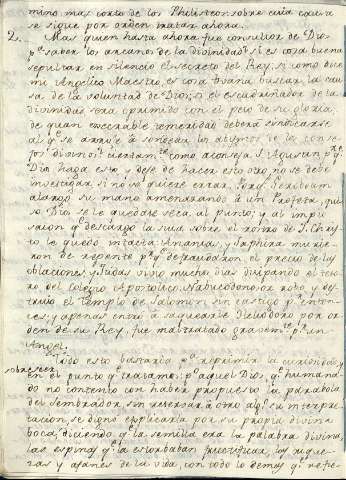 mino mas corto de los Philisteos sobre cuia causa
se sigue por orden tratar ahora.
2. Mas quien hasta ahora fue consultor de Dio-
p.ª saber los arcanos de la divinidad? si es cosa buena
sepultar en silencio el secreto del Rey; si como dice
mi Angelico Maestro, es cosa vana buscar la cau-
sa de la voluntad de Dios; si el escudriñador de la
divinidad sera oprimido con el peso de su gloria
de quan execrable temeridad deberá sindicarse
al q.e se atreve à sondear los abismos de los conse-
jos divinos? ciertam.te como aconseja S. Agustin p.r q.e
Dios haga esto y deje de hacer esto otro, no se debe
investigar si no se quiere errar. Porq.e Jeroboam
alargó su mano amenazando à un Profeta, qui-
so Dios se le quedase seca al punto; y al impio
saion q.e descargó la sua sobre el rostro de S. Chris-
to le quedo intacta. Ananias, y Saphira murie-
ron de repente p.r q.e defraudaron el precio de las
oblaciones y Judas vivio mucho dias disipando el teso-
ro del Colegio Apostolico. Nabucodonosor robo, y des-
truio el templo de Salomon sin castigo p.r enton-
ces; y apenas entró à saquearle Heliodoro por or-
den de su Rey, fue maltratado gravem.te p.r un
Angel.
Todo esto bastaria p.ª reprimir la curiosidad
sobreser en el punto q.e tratamos: p.º aquel Dios q.e humana-
do no contento con haber propuesto la parabola
del sembrador sin reservar à otro alg.º su interpre-
tacion, se dignó explicarla por su propria divina
boca, diciendo q.e la semilla era la palabra divina,
las espinas q.e la estorbaban fructificar, las rique-
zas y afanes de la vida con todo lo demas q.e refie-